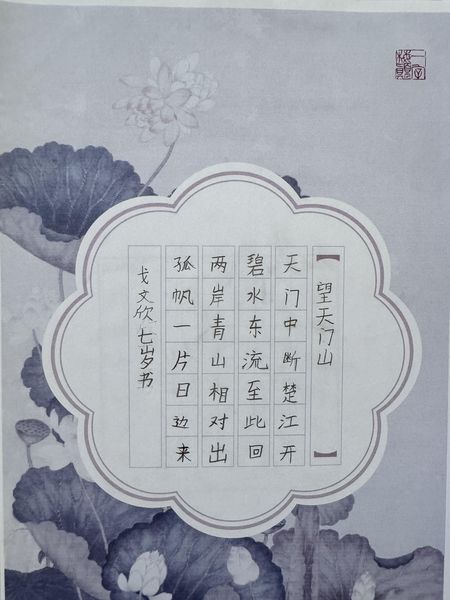 【望天门山】
天门中断楚江开
碧水东流至此回
两岸青山相对出
孤帆一片日边来
戈文欣 七岁书